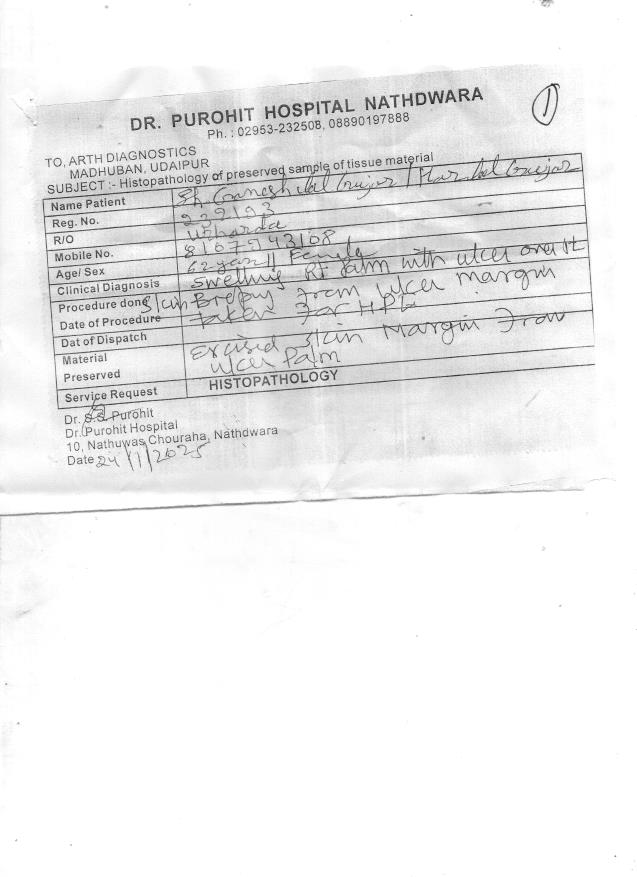 1
DR. PUROHIT HOSPITAL NATHDWARA
Ph. : 02953-232508, 08890197888
TO, ARTH DIAGNOSTICS
MADHUBAN, UDAIPUR
SUBJECT :- Histopathology of preserved sample of tissue material
Name Patient Sh. Ganeshilal Gujar / Harlal Gujar
Reg. No. 239193
R/O
Mobile No. 8107943108
Age/ Sex 62 year // Female
Clinical Diagnosis Swelling Rt palm with ulcer over it
Procedure done Skin Biopsy from ulcer margin
Date of Procedure taken For HPE
Dat of Dispatch
Material Excised skin Margin From
Preserved ulcer Palm
Service Request HISTOPATHOLOGY
Dr. S.S. Purohit
Dr. Purohit Hospital
10, Nathuwas Chouraha, Nathdwara
Date 24/1/2025